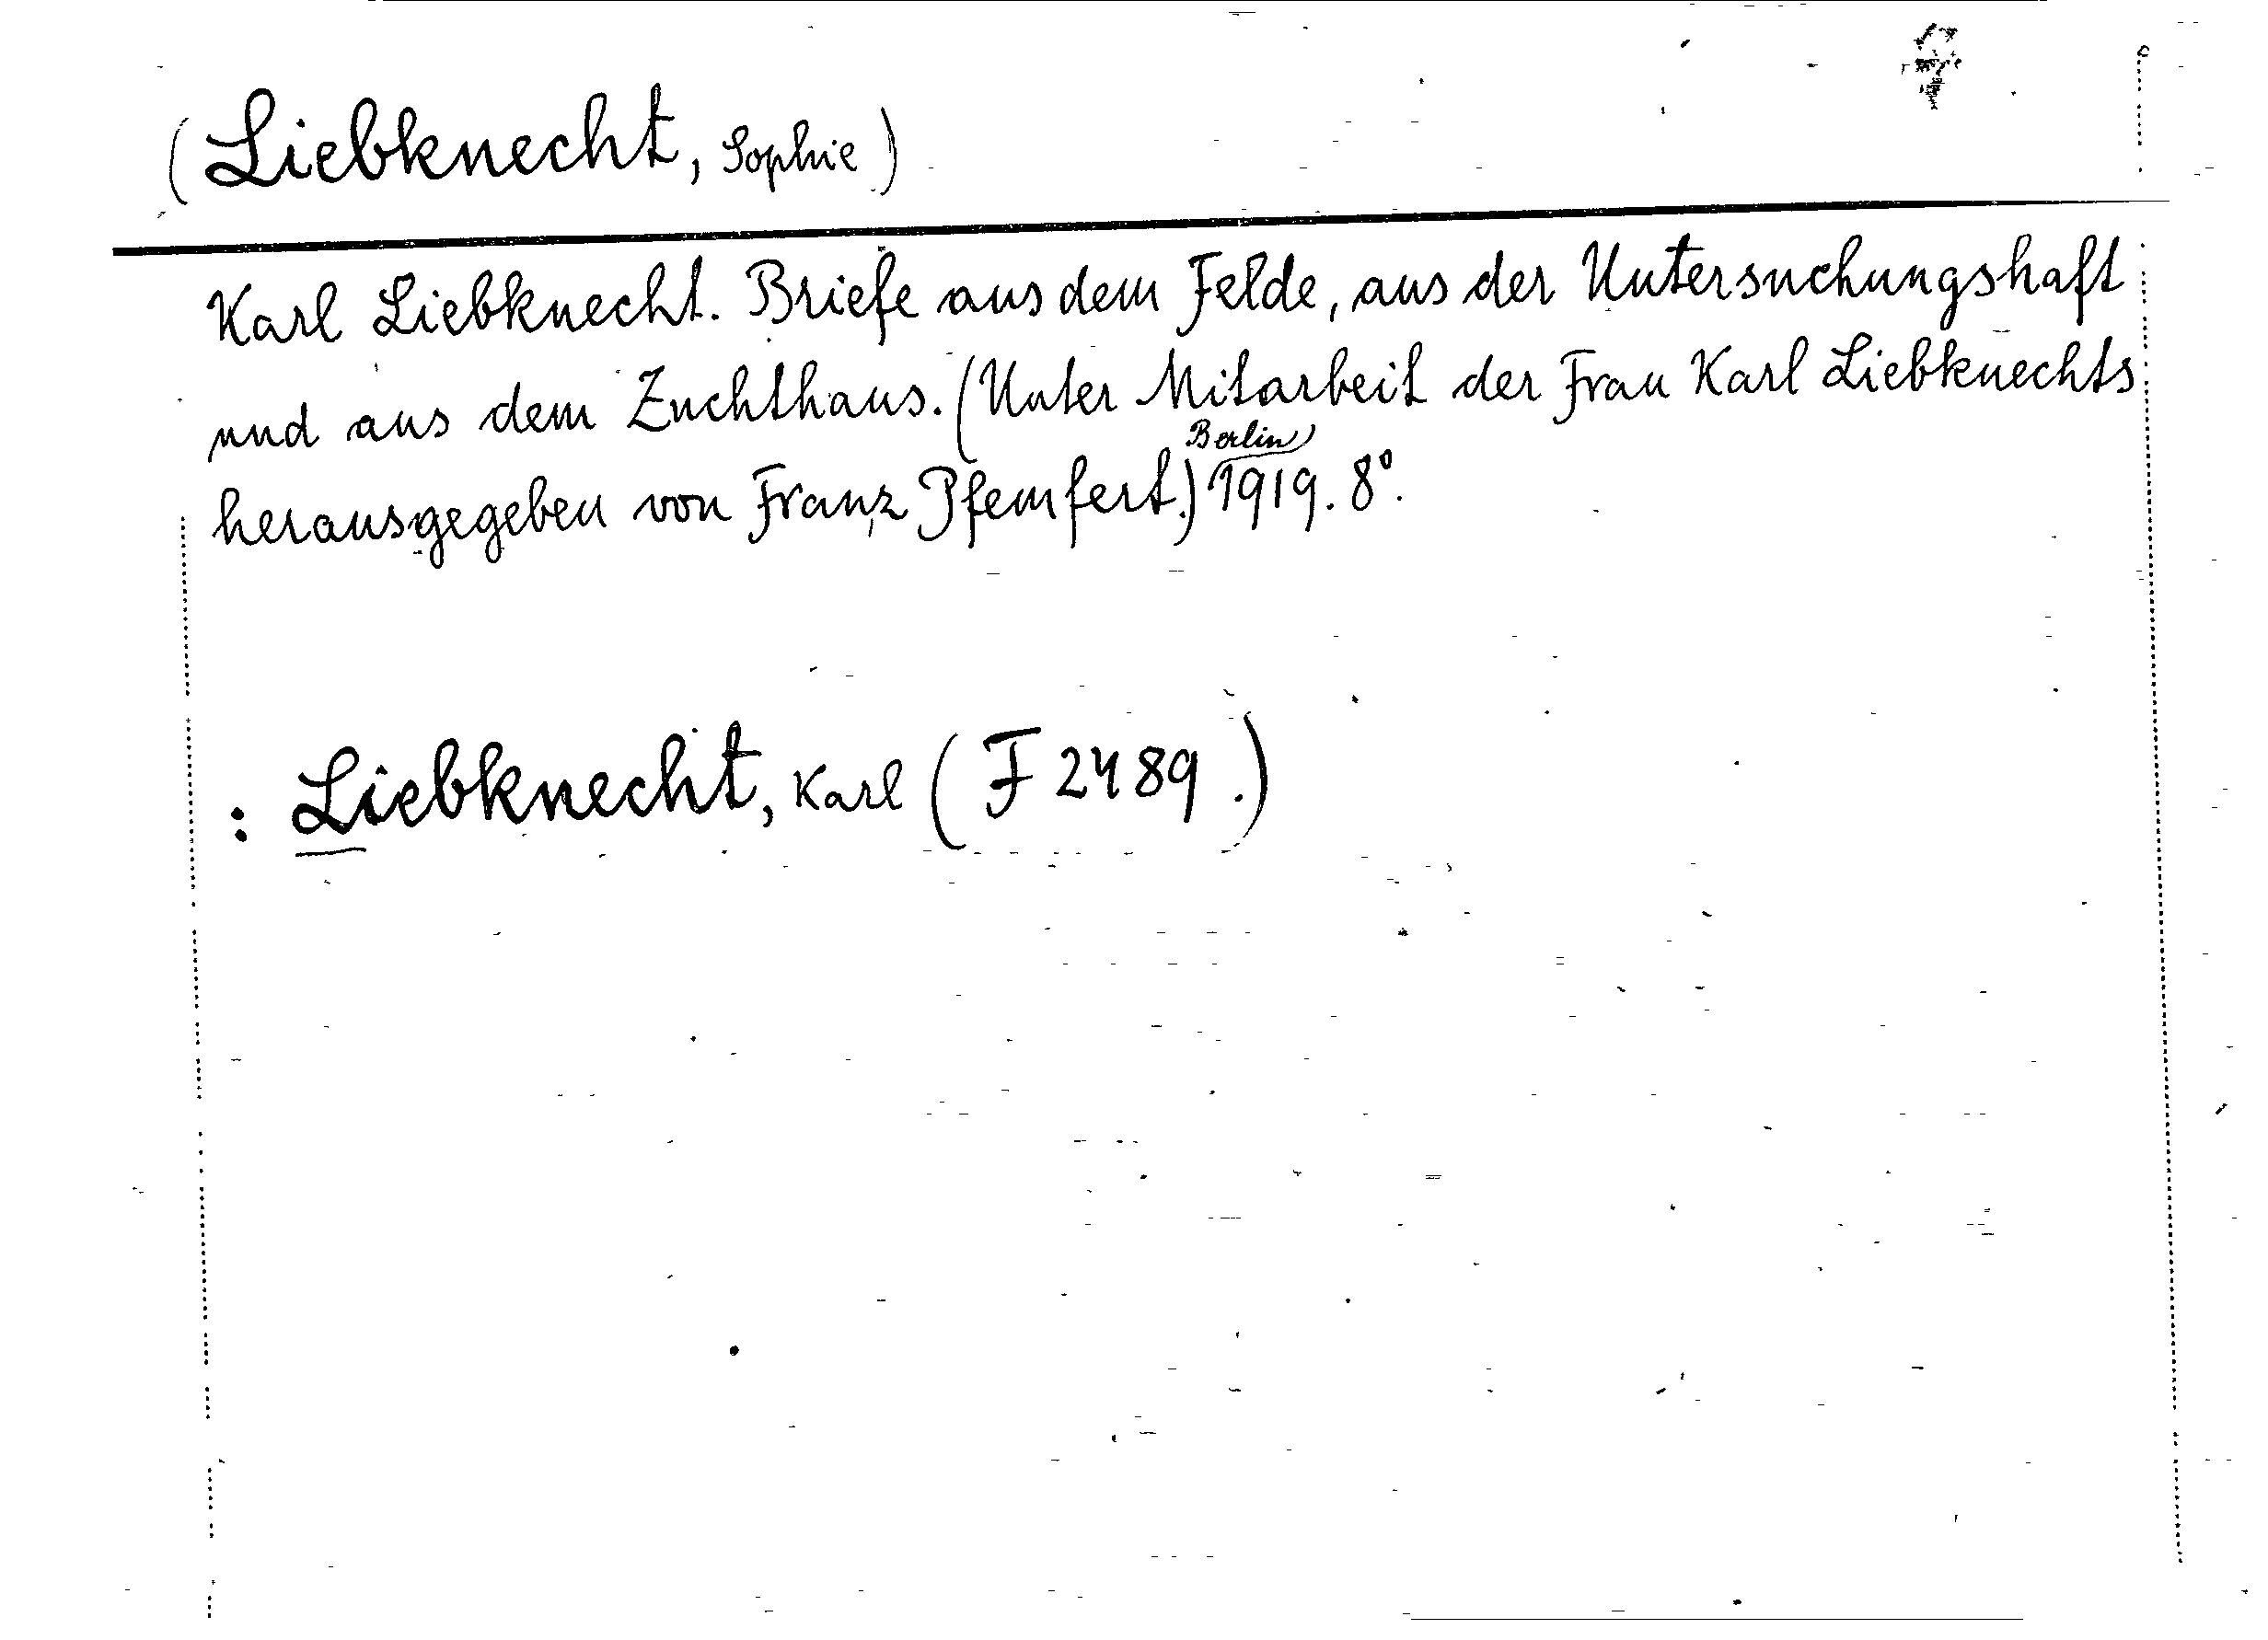 (Liebknecht, Sophie)
Karl Liebknecht. Briefe aus dem Felde, aus der Untersuchungshaft
und aus dem Zuchthaus. (Unter Mitarbeit der Frau Karl Liebknechts
Berlin
herausgegeben von Franz Pfemfert.) 1919. 8°.
: Liebknecht, Karl (F 2489.)